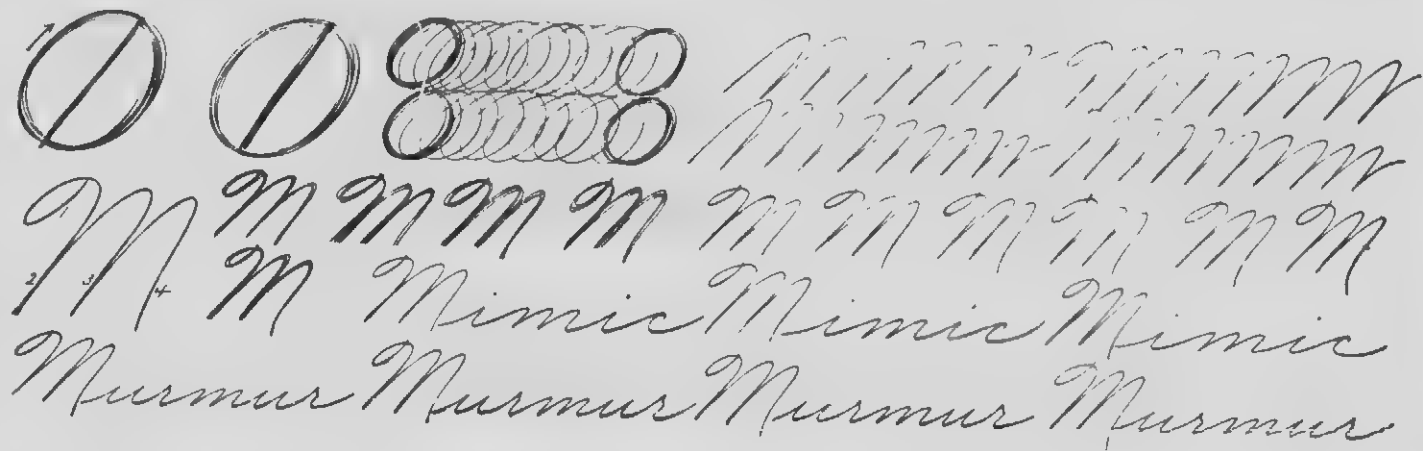 M M M M M M M M M M M
2 3 4 M Mimic Mimic Mimic
Murmur Murmur Murmur Murmur